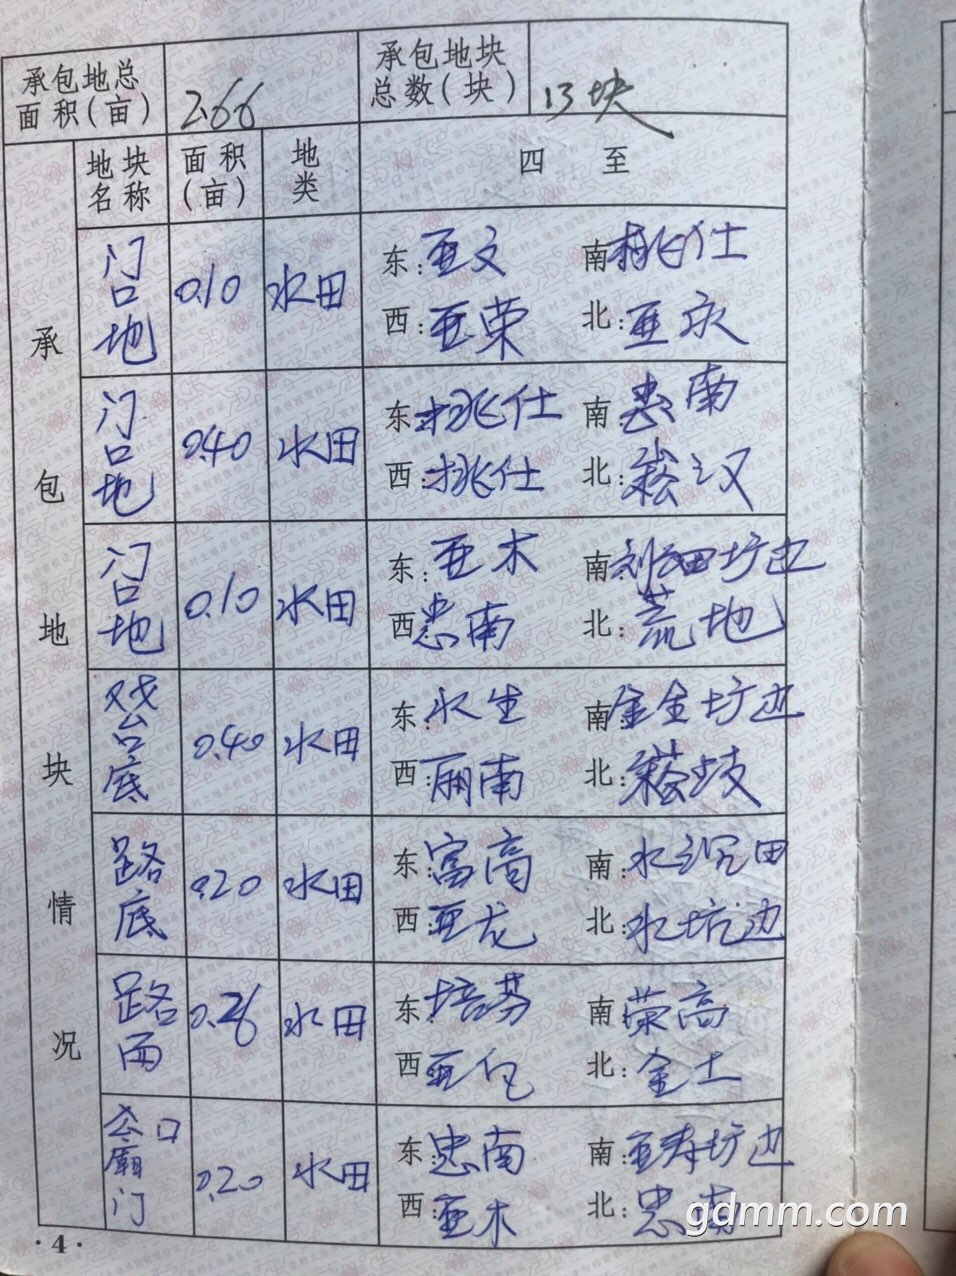 承包地总面积(亩) 2.66 承包地块总数(块) 13块
承包地块情况
地块名称 面积(亩) 地类 四至
门口地 0.10 水田 东:亚文 南:桃仕
西:亚荣 北:亚庆
门口地 0.40 水田 东:桃仕 南:忠南
西:桃仕 北:崧汉
门口地 0.10 水田 东:亚木 南: 田坊边
西:忠南 北:荒地
戏台底 0.40 水田 东:水生 南:金全坊边
西:丽南 北:
路底 0.20 水田 东:富高 南:水沉田
西:亚龙 北:水坑边
路西 0.26 水田 东:培芬 南:荣高
西:亚 北:金土
庙门口 0.20 水田 东:忠南 南:亚寿坊边
西:亚木 北:忠南
·4·
gdmm.com